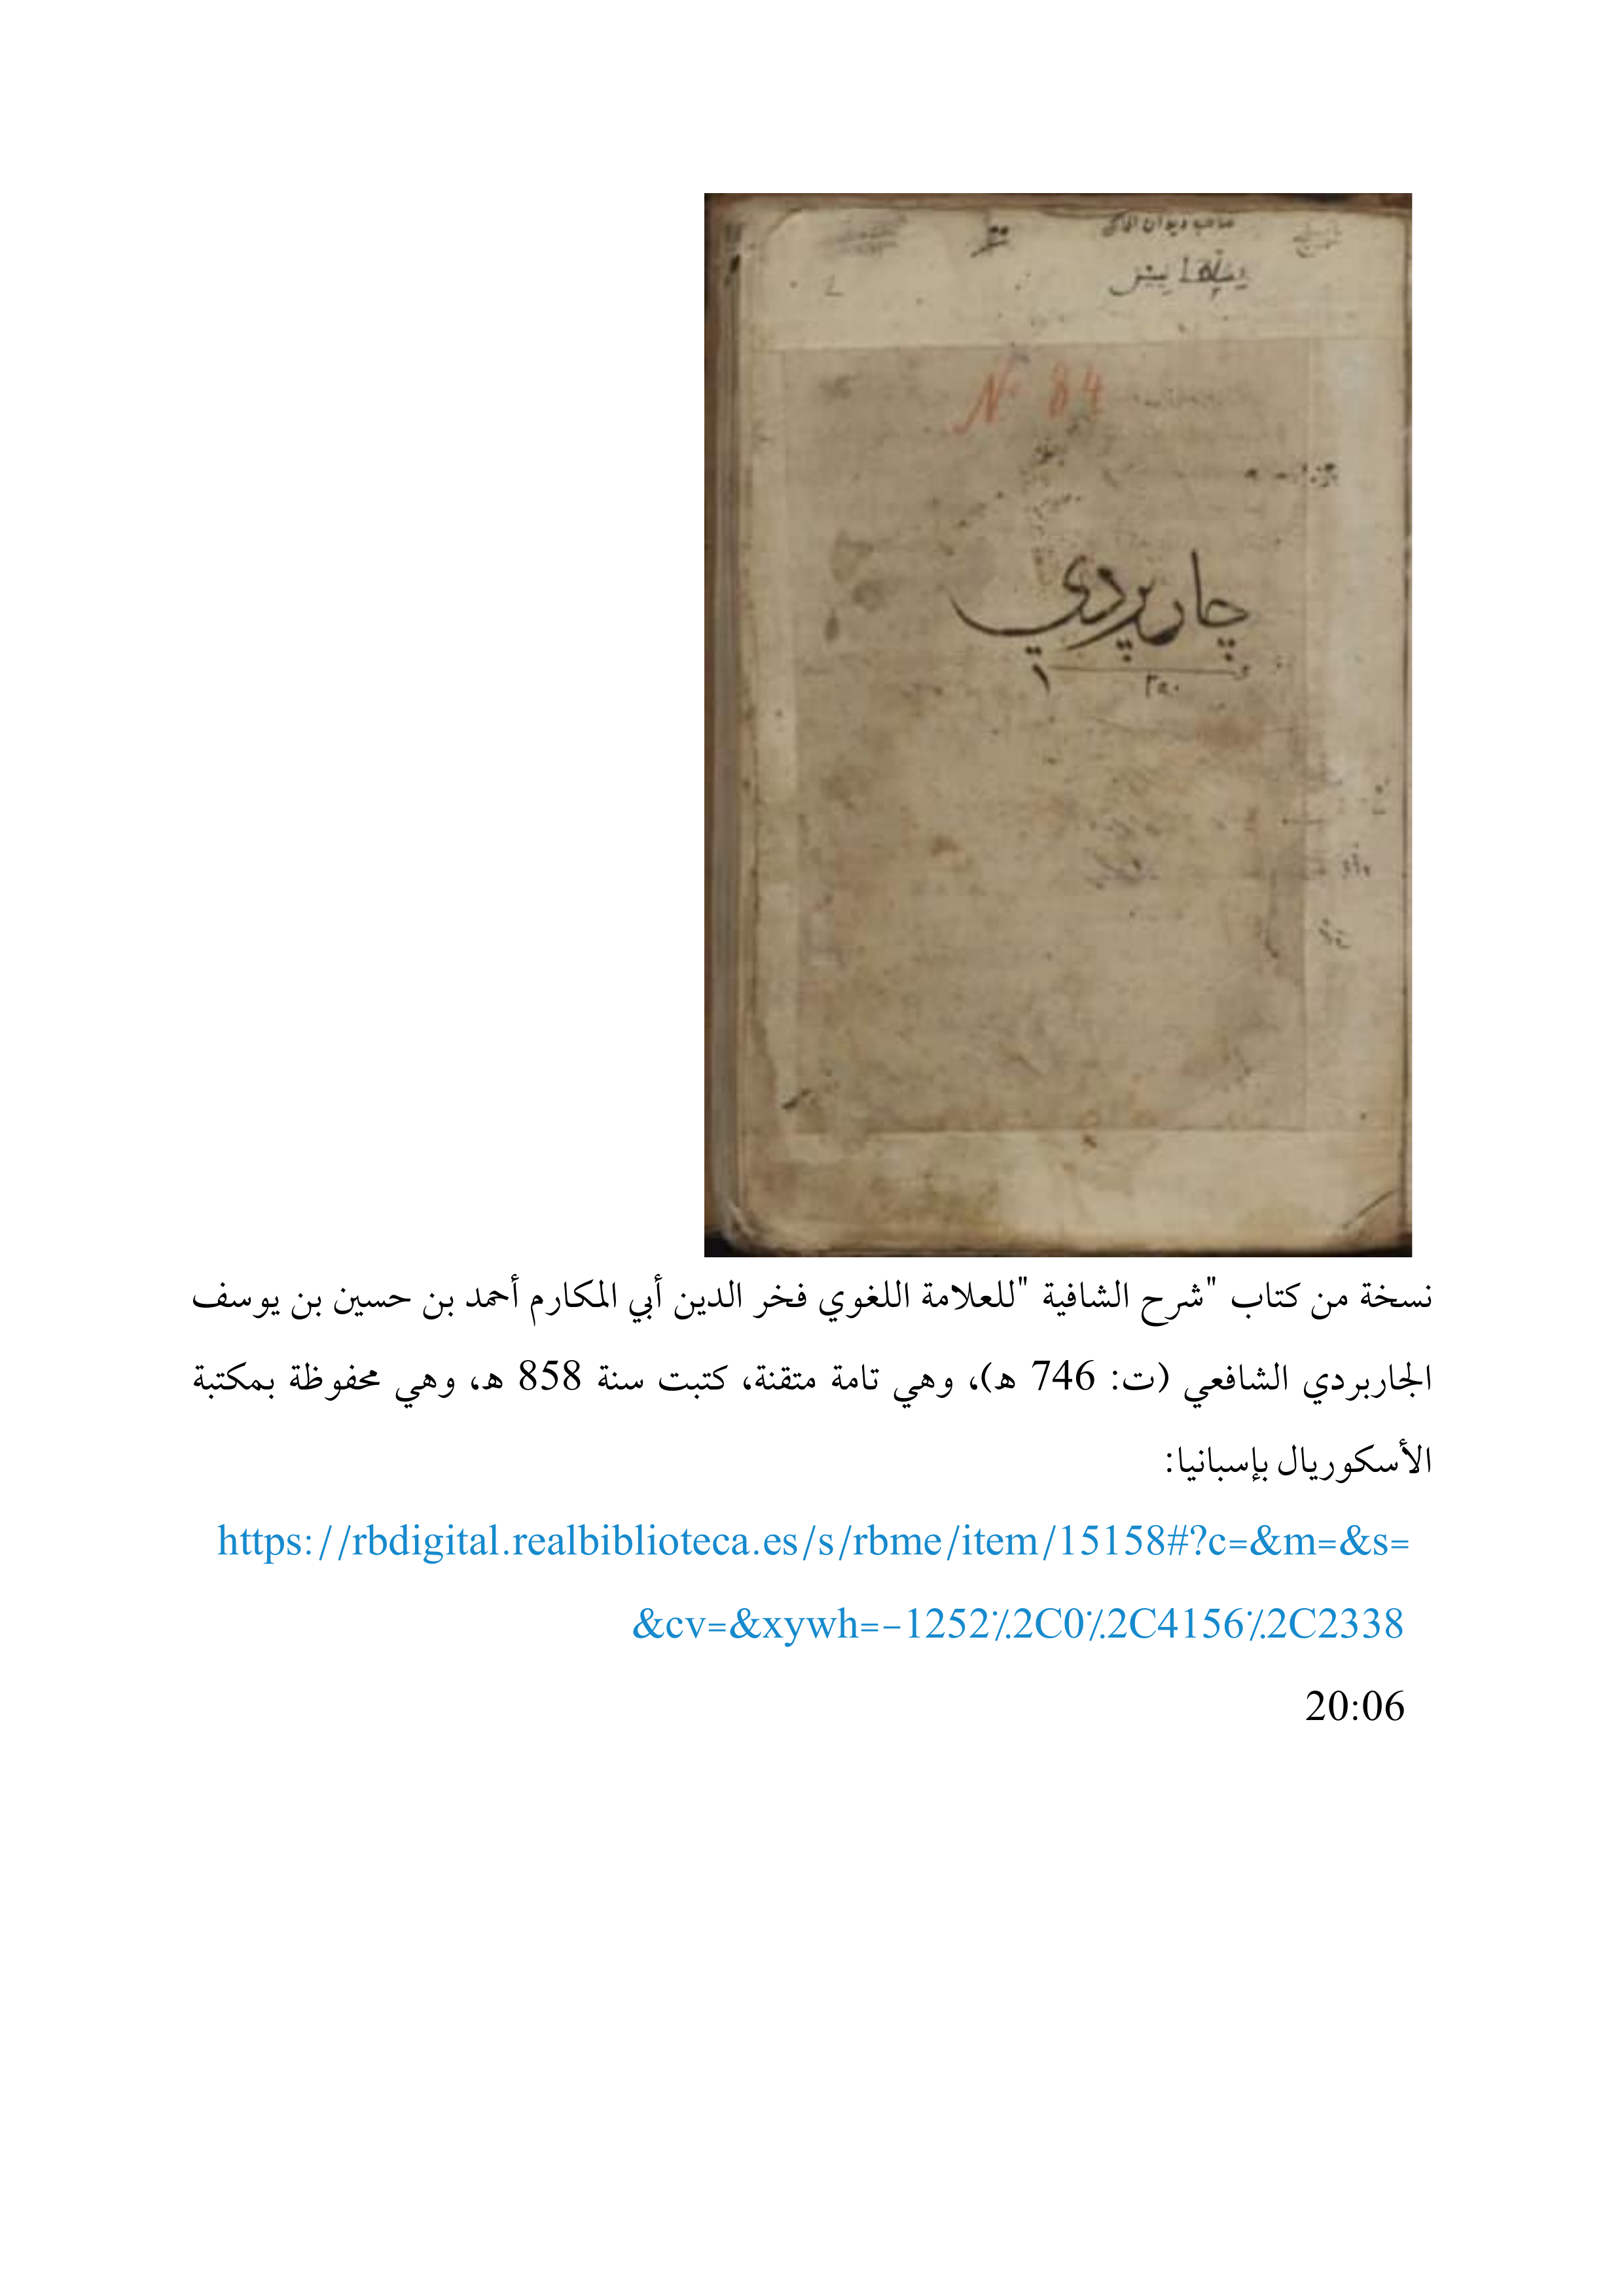 صاحب ديوان
N° 84
چارپردي
نسخة من كتاب "شرح الشافية "للعلامة اللغوي فخر الدين أبي المكارم أحمد بن حسين بن يوسف
الجاربردي الشافعي (ت: 746 ه)، وهي تامة متقنة، كتبت سنة 858 ه، وهي محفوظة بمكتبة
الأسكوريال بإسبانيا:
https://rbdigital.realbiblioteca.es/s/rbme/item/15158#?c=&m=&s=
&cv=&xywh=-1252%2C0%2C4156%2C2338
20:06